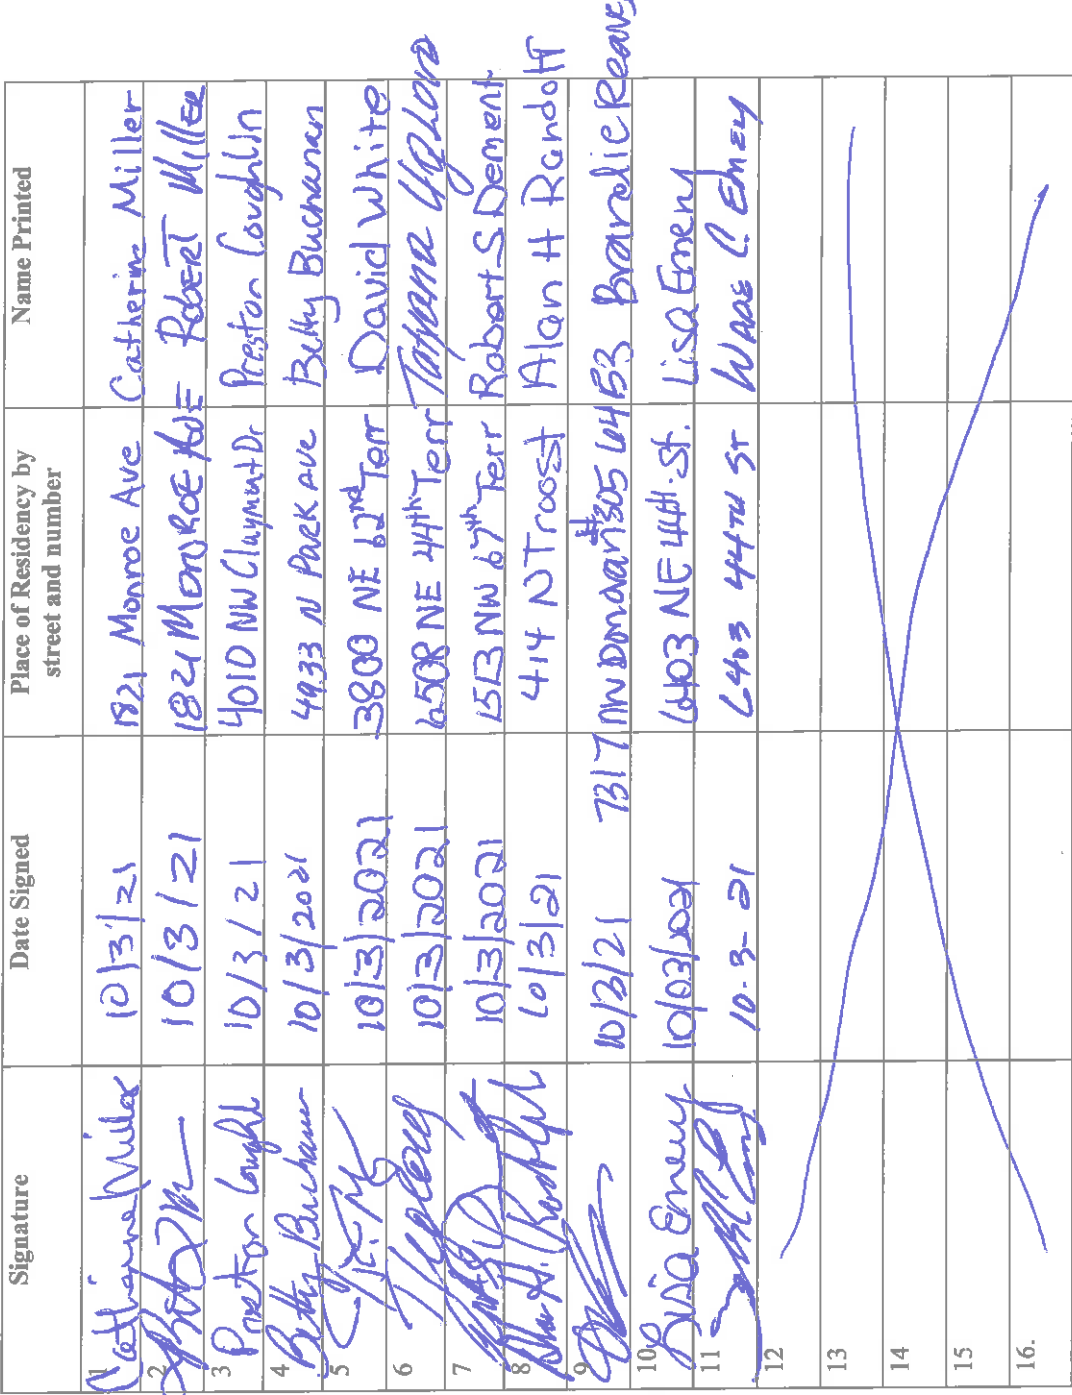 Signature Date Signed Place of Residency by street and number Name Printed
1 Catherine Miller 10/3/21 1821 Monroe Ave Catherine Miller
2 10/3/21 1821 MONROE AVE ROBERT MILLER
3 Preston Coughl 10/3/21 4010 NW Claymont Dr Preston Coughlin
4 Betty Buchanan 10/3/2021 4933 N PARK AVE Betty Buchanan
5 10/3/2021 3800 NE 62nd Terr David White
6 10/3/2021 6508 NE 44th Terr Tatyana
7 10/3/2021 1513 NW 67th Terr Robert S Dement
8 10/3/21 414 N Troost Alan H Randolff
9 10/3/21 7317 NW Donovan #305 64153
10 Lisa Emery 10/03/2021 6403 NE 44th St. Lisa Emery
11 10-3-21 6403 44TH ST WADE C EMERY
12
13
14
15
16.